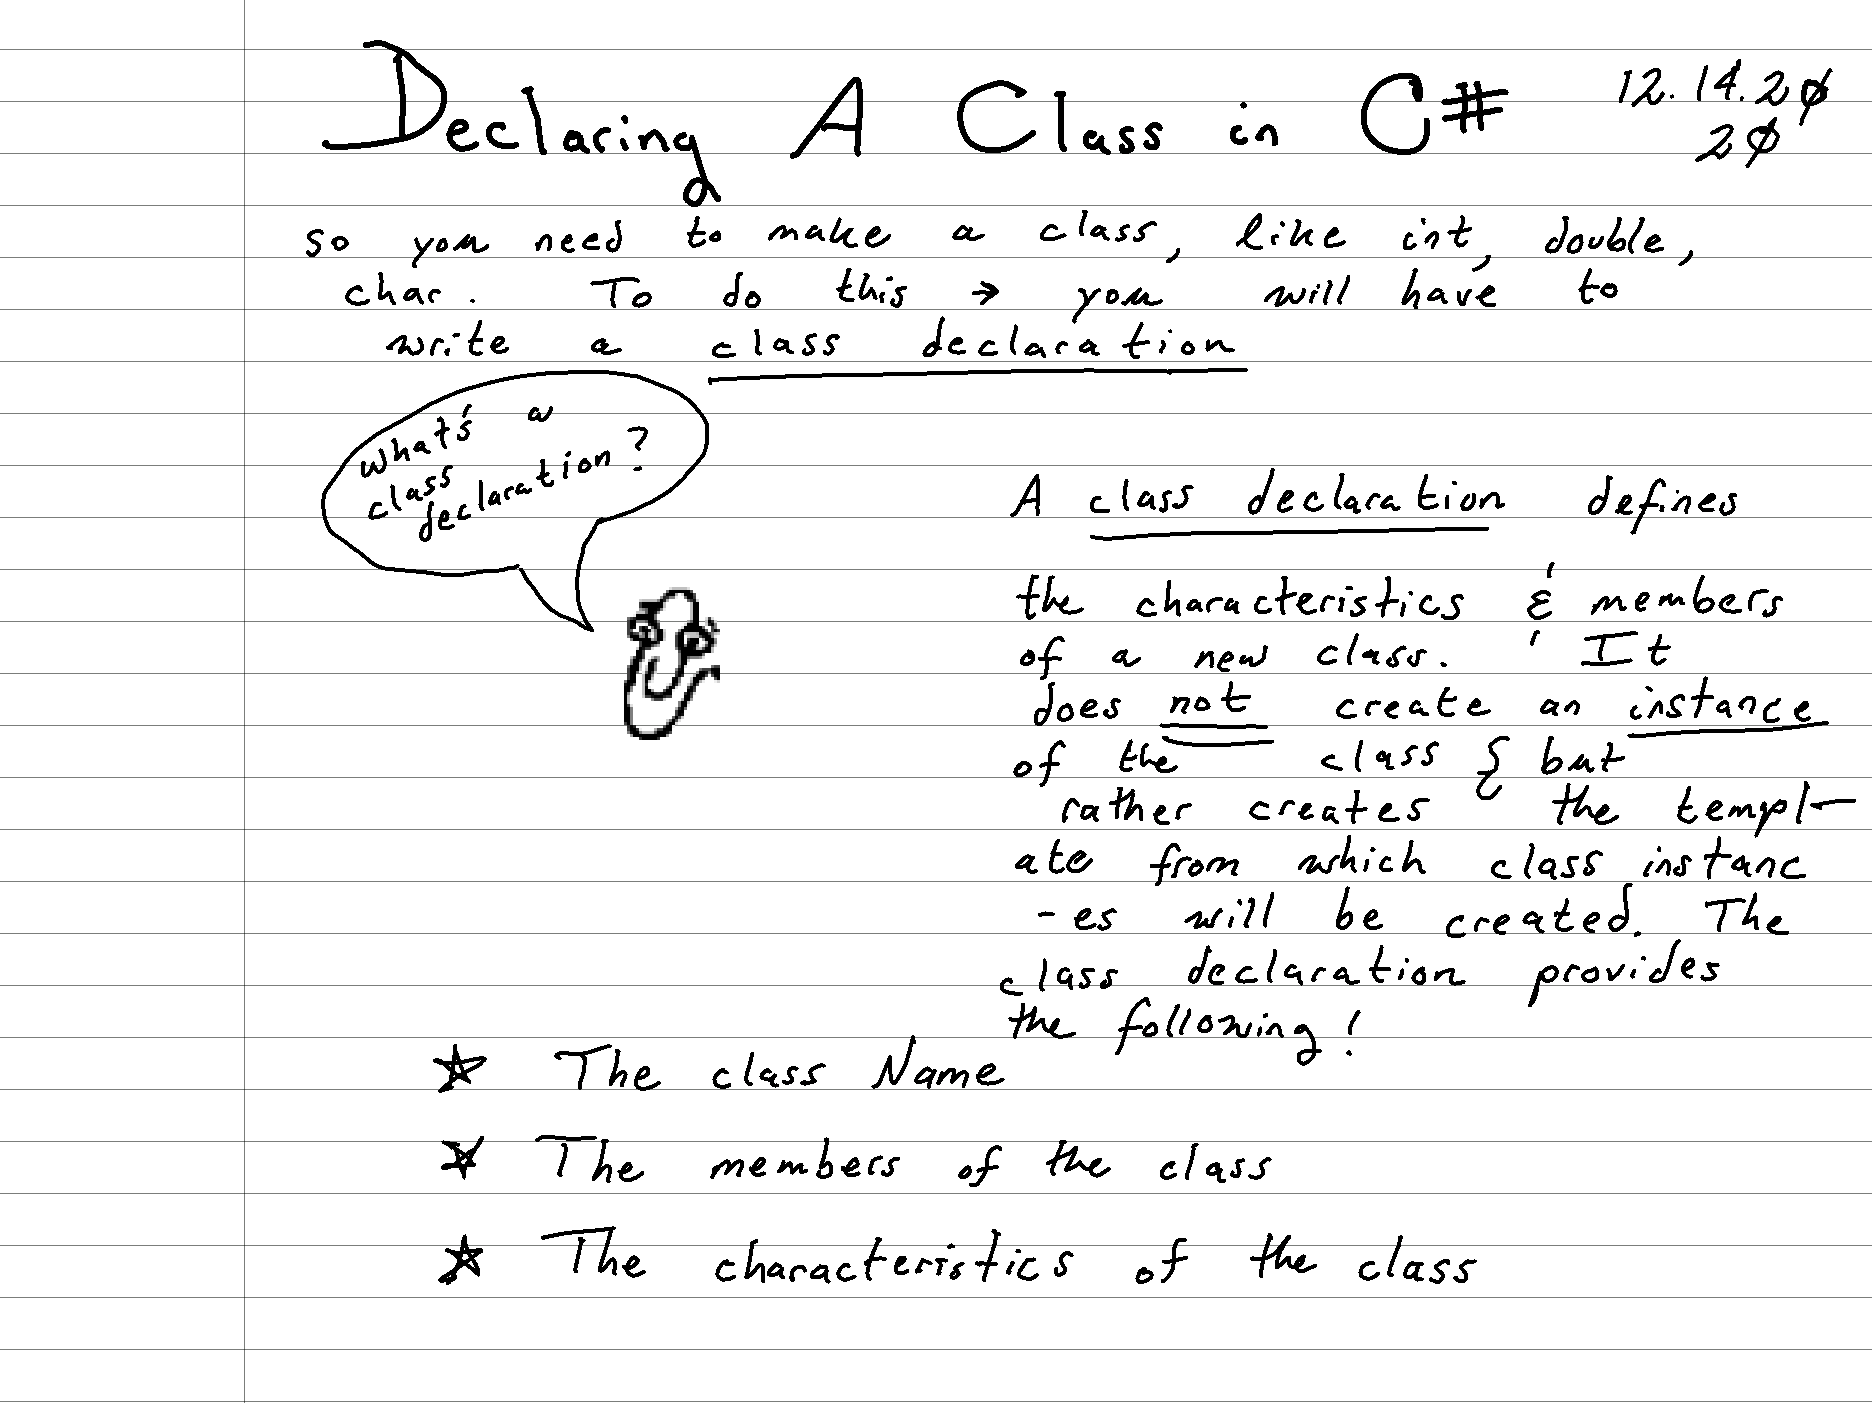 Declaring A Class in C# 12.14.20
20
so you need to make a class, like int, double,
char. To do this → you will have to
write a class declaration
what's a
class
declaration?
A class declaration defines
the characteristics & members
of a new class. It
does not create an instance
of the class but
rather creates the templ-
ate from which class instanc
-es will be created. The
class declaration provides
the following!
☆ The class Name
☆ The members of the class
☆ The characteristics of the class